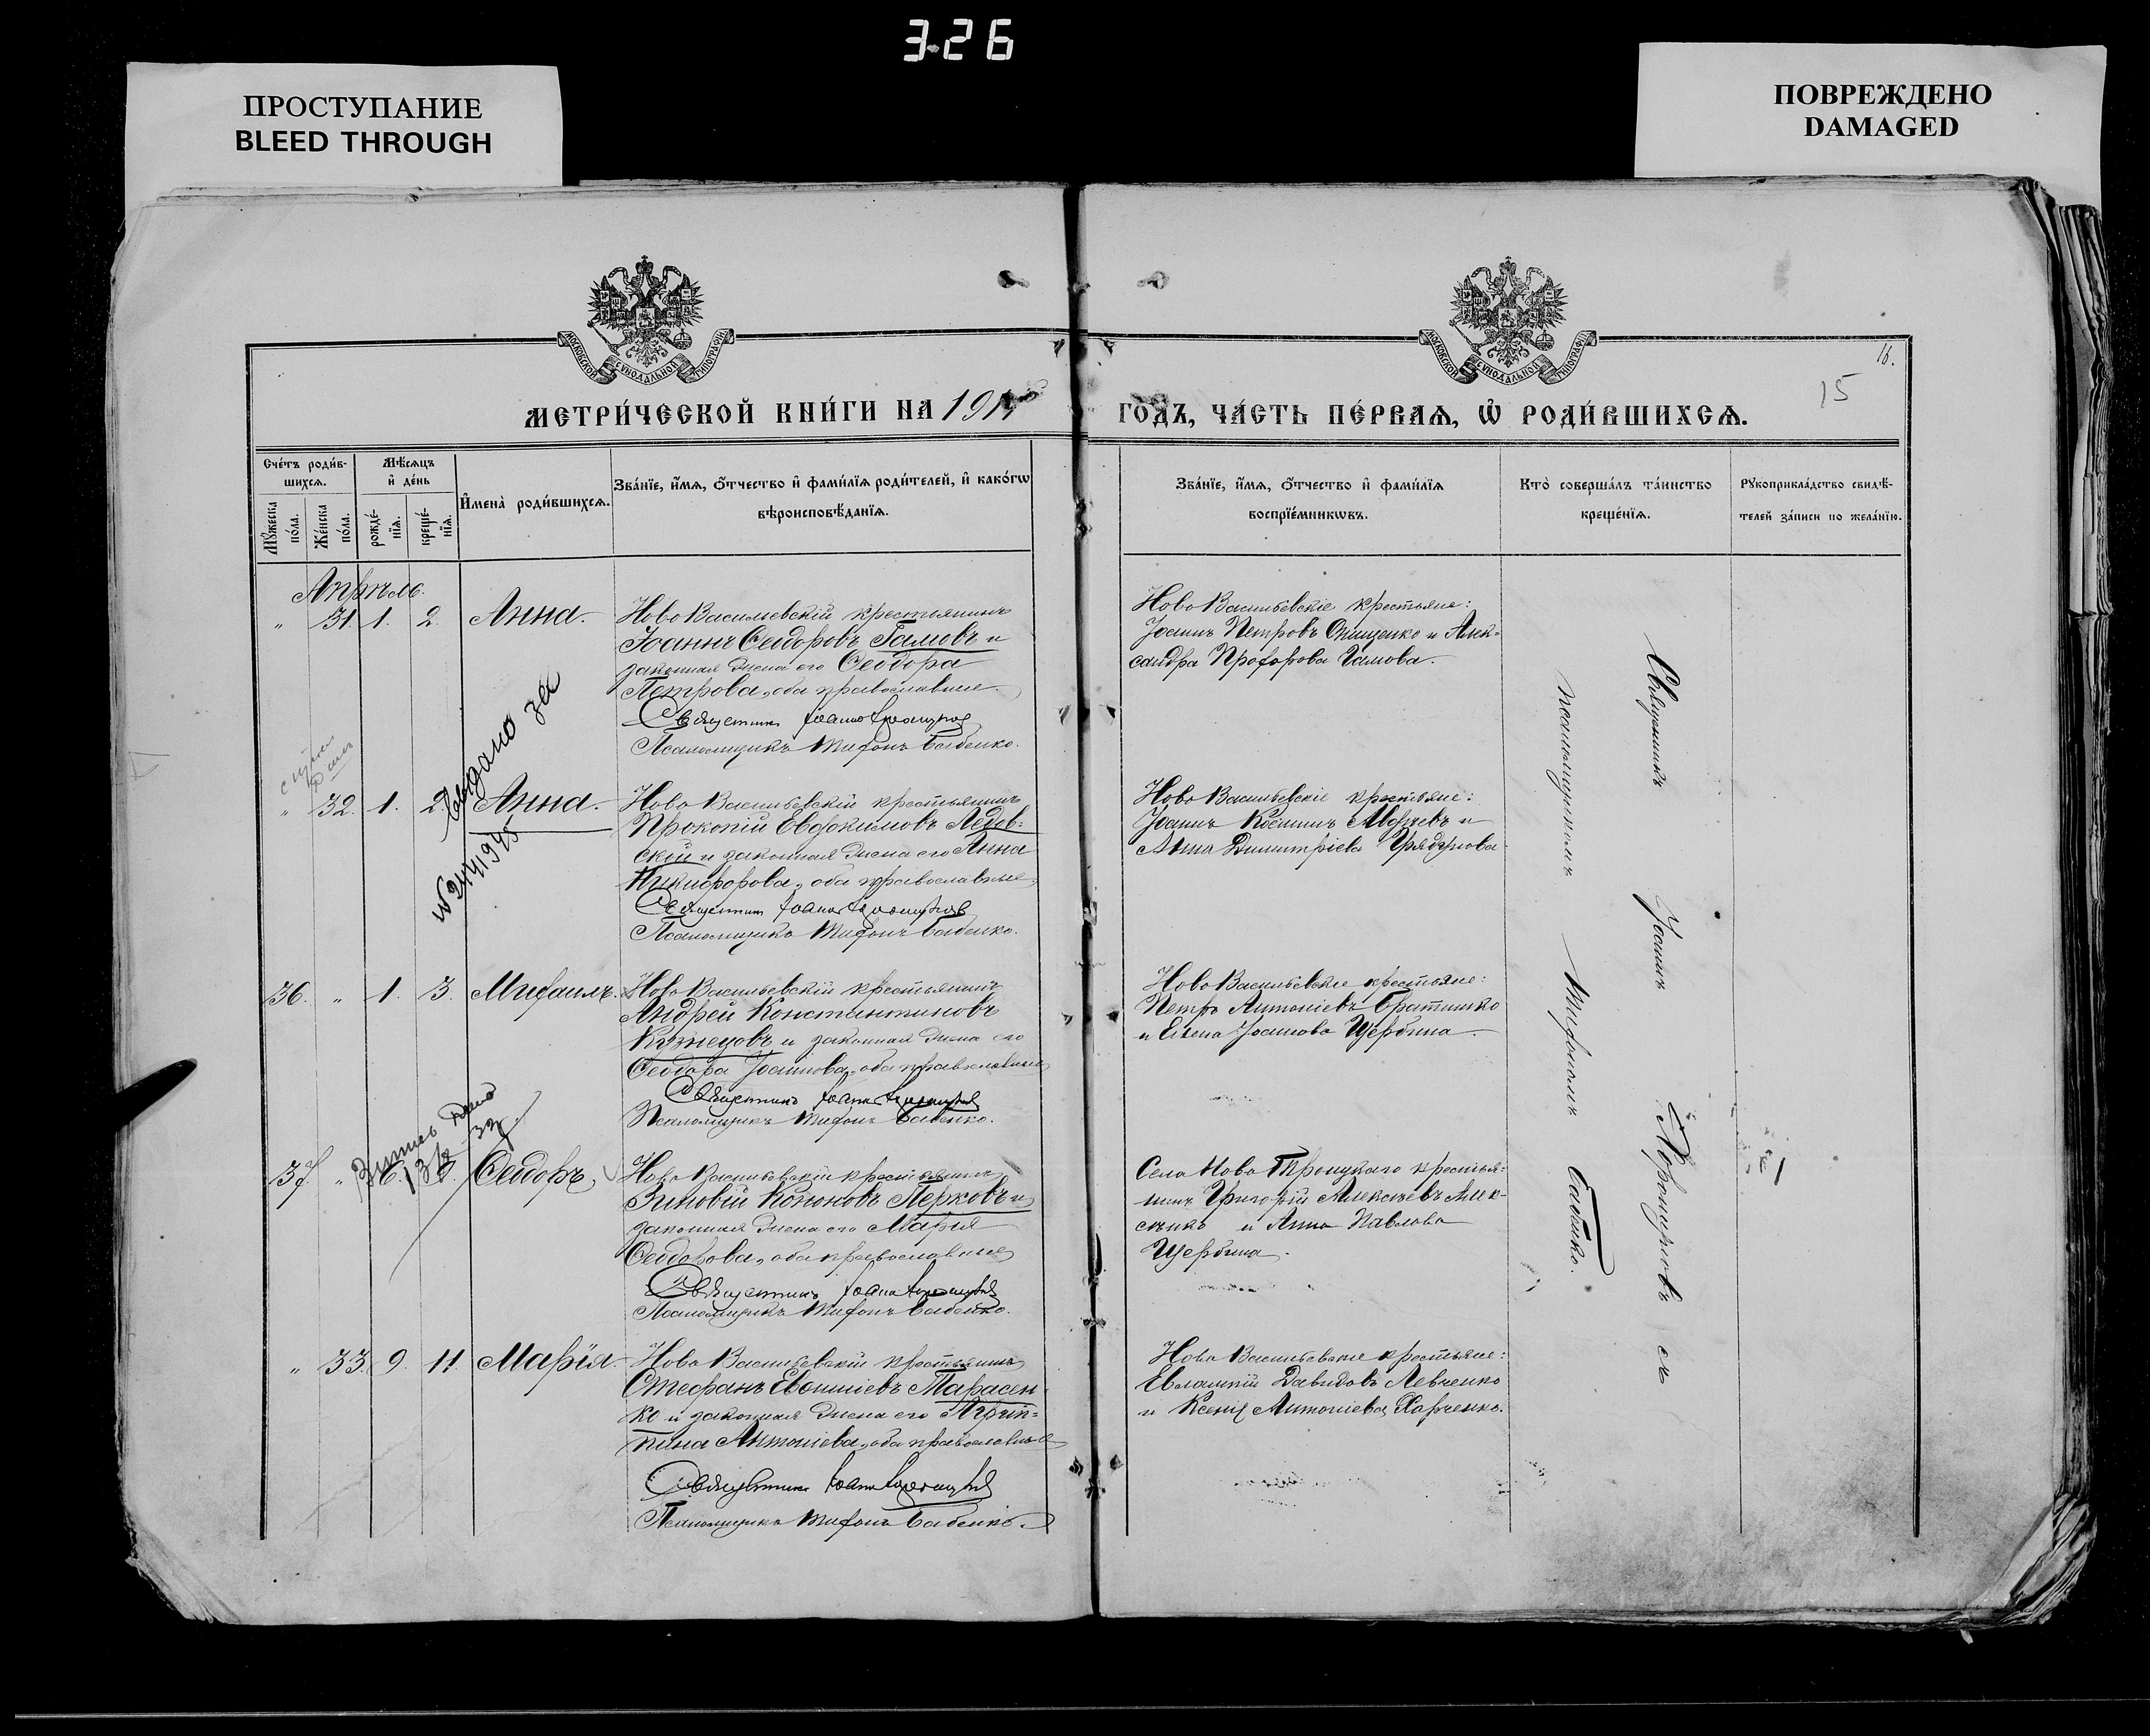 3-26
ПРОСТУПАНИЕ
BLEED THROUGH
ПОВРЕЖДЕНО
DAMAGED
МОСКОВСКОЙ СѴНОДАЛЬНОЙ ТИПОГРАФІИ
МОСКОВСКОЙ СѴНОДАЛЬНОЙ ТИПОГРАФІИ
16.
15
МЕТРИ́ЧЕСКОЙ КНИ́ГИ НА 191
ГОДЪ, ЧА́СТЬ ПЕ́РВАѦ, Ѡ҆ РОДИ́ВШИХСѦ.
Сче́тъ роди́в-
шихсѧ.
Мѣ́сѧцъ
и҆ де́нь
Мꙋ́жеска
по́ла.
Же́нска
по́ла.
рожде́-
нїѧ.
креще́-
нїѧ.
И҆мена̀ роди́вшихсѧ.
Зва́нїе, и҆́мѧ, ѻ҆́тчество и҆ фами́лїѧ роди́телей, и҆ како́гѡ
вѣроисповѣ́данїѧ.
Зва́нїе, и҆́мѧ, ѻ҆́тчество и҆ фами́лїѧ
воспрїе́мникѡвъ.
Кто̀ соверша́лъ та́инство
креще́нїѧ.
Рꙋкоприкла́дство свидѣ́-
телей за́писи по жела́нїю.
Апрѣль.
" 31. 1. 2. Анна.
Ново Васильевскій крестьянинъ
Іоаннъ Ѳеодоровъ Гамовъ и
законная жена его Ѳеодора
Петрова, оба православные.
Священникъ Іоаннъ
Псаломщикъ Тихонъ Бабенко.
Ново Васильевскіе крестьяне:
Іоаннъ Петровъ Онищенко и Алек-
сандра Прохорова Гамова.
выдано за
№ 244 1945
" 32. 1. 2. Анна.
Ново Васильевскій крестьянинъ
Прокопій Евдокимовъ Ледов-
скій и законная жена его Анна
Никифорова, оба православные.
Священникъ Іоаннъ
Псаломщикъ Тихонъ Бабенко.
Ново Васильевскіе крестьяне:
Іоаннъ Косминъ и
Анна Димитріева
36. " 1. 3. Михаилъ.
Ново Васильевскій крестьянинъ
Андрей Константиновъ
Кузнецовъ и законная жена его
Ѳеодора Іоаннова, оба православные
Священникъ Іоаннъ
Псаломщикъ Тихонъ Бабенко.
Ново Васильевскіе крестьяне:
Петръ Антоніевъ Братишко
и Елена Іоаннова Щербина.
37. " Ѳеодоръ.
Ново Васильевскій крестьянинъ
Зиновій Кононовъ Перковъ и
законная жена его Марія
Ѳеодорова, оба православные
Священникъ Іоаннъ
Псаломщикъ Тихонъ Бабенко.
Села Ново Троицкаго крестья-
нинъ Григорій Алексѣевъ Алек-
сѣнко и Анна Павлова
Щербина.
" 33. 9. 11. Марія.
Ново Васильевскій крестьянинъ
Стефанъ Тарасен-
ко и законная жена его Агрип-
пина Антоніева, оба православные
Священникъ Іоаннъ
Псаломщикъ Тихонъ Бабенко.
Ново Васильевскіе крестьяне:
Евлампій Давидовъ Левченко
и Ксенія Антоніева Харченко.
Священникъ Іоаннъ съ
псаломщикомъ Тихономъ Бабенко.